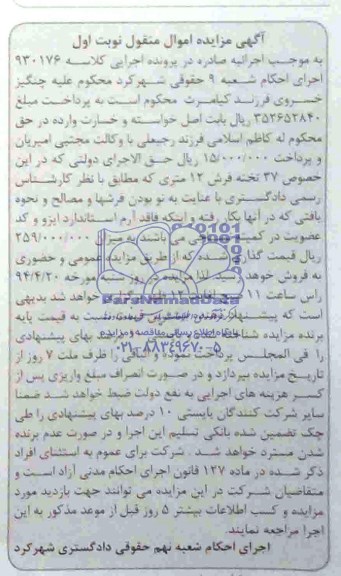 آگهی مزایده اموال منقول نوبت اول
به موجب اجرائیه صادره در پرونده اجرایی کلاسه ۹۳۰۱۷۶
اجرای احکام شعبه ۹ حقوقی شهرکرد محکوم علیه چنگیز
خسروی فرزند کیامرث محکوم است به پرداخت مبلغ
۳۵۲۶۵۲۸۴۰ ریال بابت اصل خواسته و خسارت وارده در حق
محکوم له کاظم اسلامی فرزند رجبعلی با وکالت مجتبی امیریان
و پرداخت ۱۵/۰۰۰/۰۰۰ ریال حق الاجرای دولتی که در این
خصوص ۳۷ تخته فرش ۱۲ متری که مطابق با نظر کارشناس
رسمی دادگستری با عنایت به نو بودن فرشها و مصالح و نحوه
بافتی که در آنها بکار رفته و اینکه فاقد آرم استاندارد ایزو و کد
عضویت در می باشند به ۲۵۹/۰۰۰/۰۰۰
ریال قیمت گذاری شده که از طریق مزایده عمومی و حضوری
به فروش خواهد لذا مزایده در روز مورخه ۹۴/۴/۲۰
راس ساعت ۱۱ ۱۲ خواهد شد بدیهی
است که نسبت به قیمت پایه
برنده مزایده بهای پیشنهادی
را فی المجلس پرداخت نموده و الباقی را ظرف ملت ۷ روز از
تاریخ مزایده بپردازد و در صورت انصراف مبلغ واریزی پس از
کسر هزینه های اجرایی به نفع دولت ضبط خواهد شد ضمنا
سایر شرکت کنندگان بایستی ۱۰ درصد بهای پیشنهادی را طی
چک تضمین شده بانکی تسلیم این اجرا و در صورت عدم برنده
شدن مسترد خواهد شد . شرکت برای عموم به استثنای افراد
ذکر شده در ماده ۱۲۷ قانون اجرای احکام مدنی آزاد است و
متقاضیان شرکت در این مزایده می توانند جهت بازدید مورد
مزایده و کسب اطلاعات بیشتر ۵ روز قبل از موعد مذکور به این
اجرا مراجعه نمایند.
اجرای احکام شعبه نهم حقوقی دادگستری شهرکرد
ParsNamadData
پایگاه اطلاع رسانی مناقصه و مزایده
۰۲۱-۸۸۳۴۹۶۷۰-۵